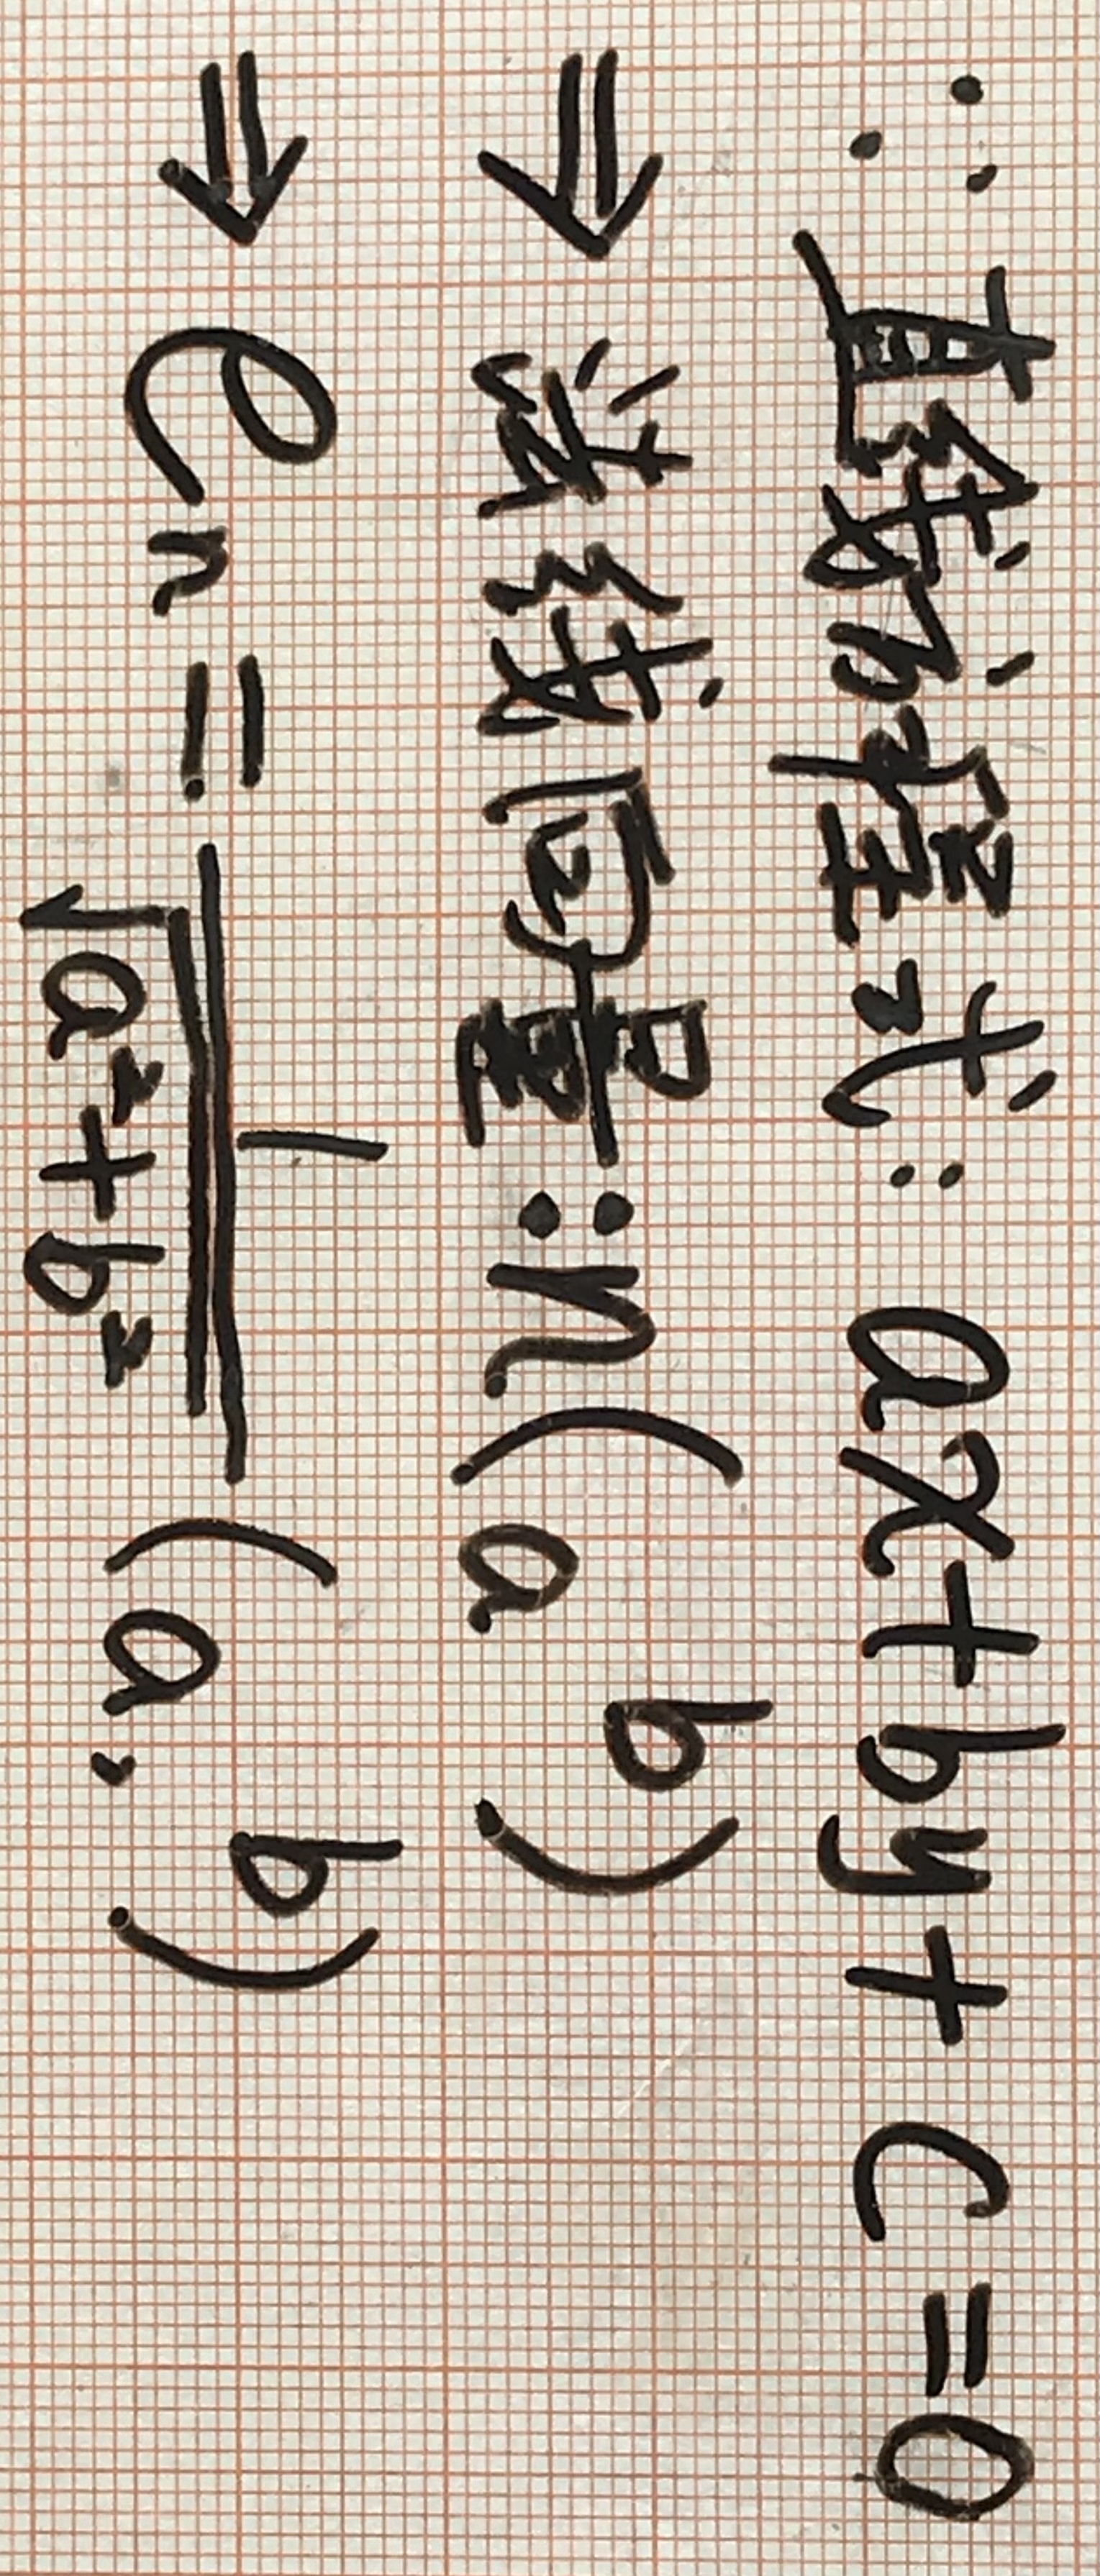 ∵ 直线方程式: ax+by+c=0
⇒ 法线向量:n(a b)
⇒ eₙ = 1/√(a²+b²) (a, b)